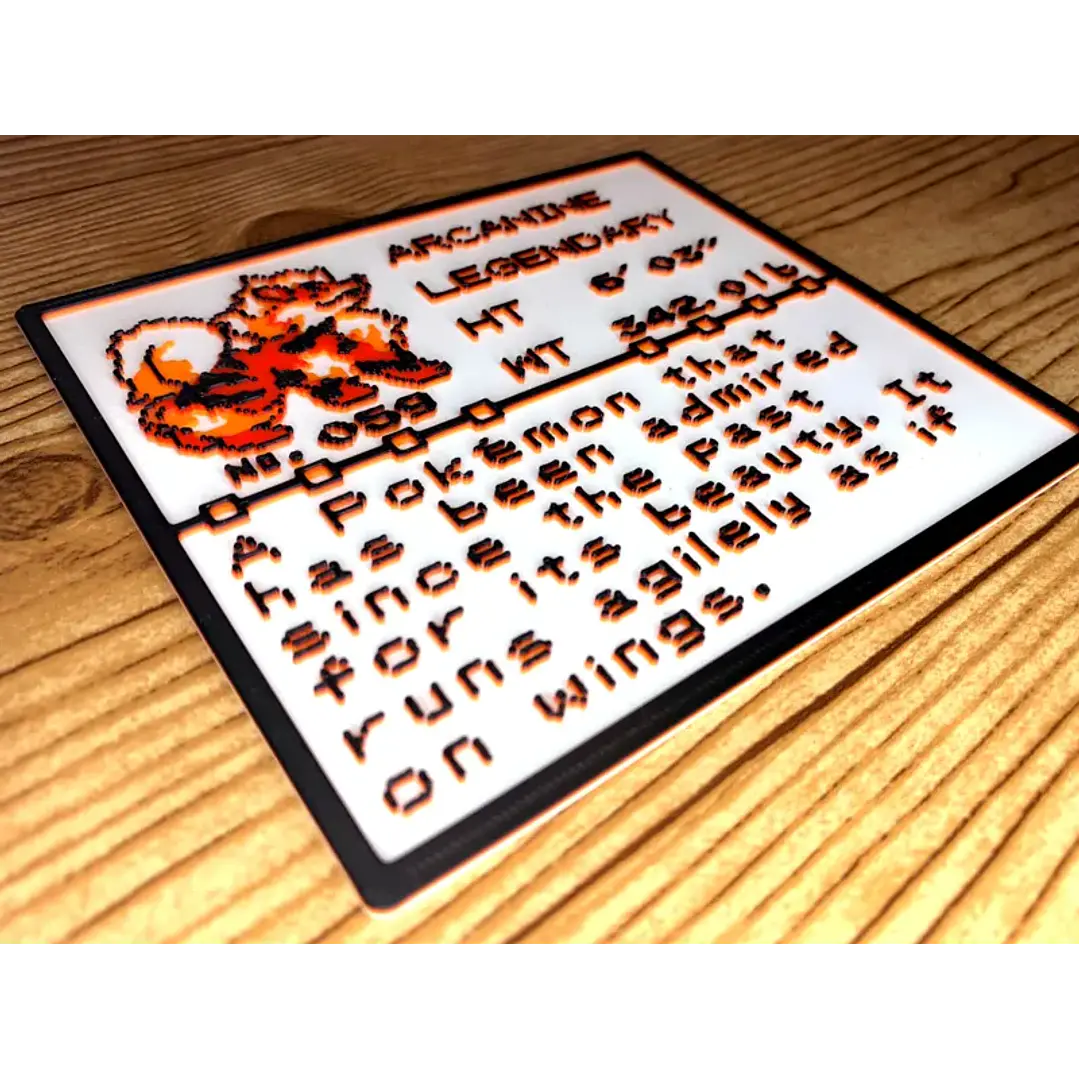 ARCANINE
LEGENDARY
HT 6' 02"
WT 342.0lb
No. 059
A Pokémon that
has been admired
since the past
for its beauty. It
runs agilely as if
on wings.